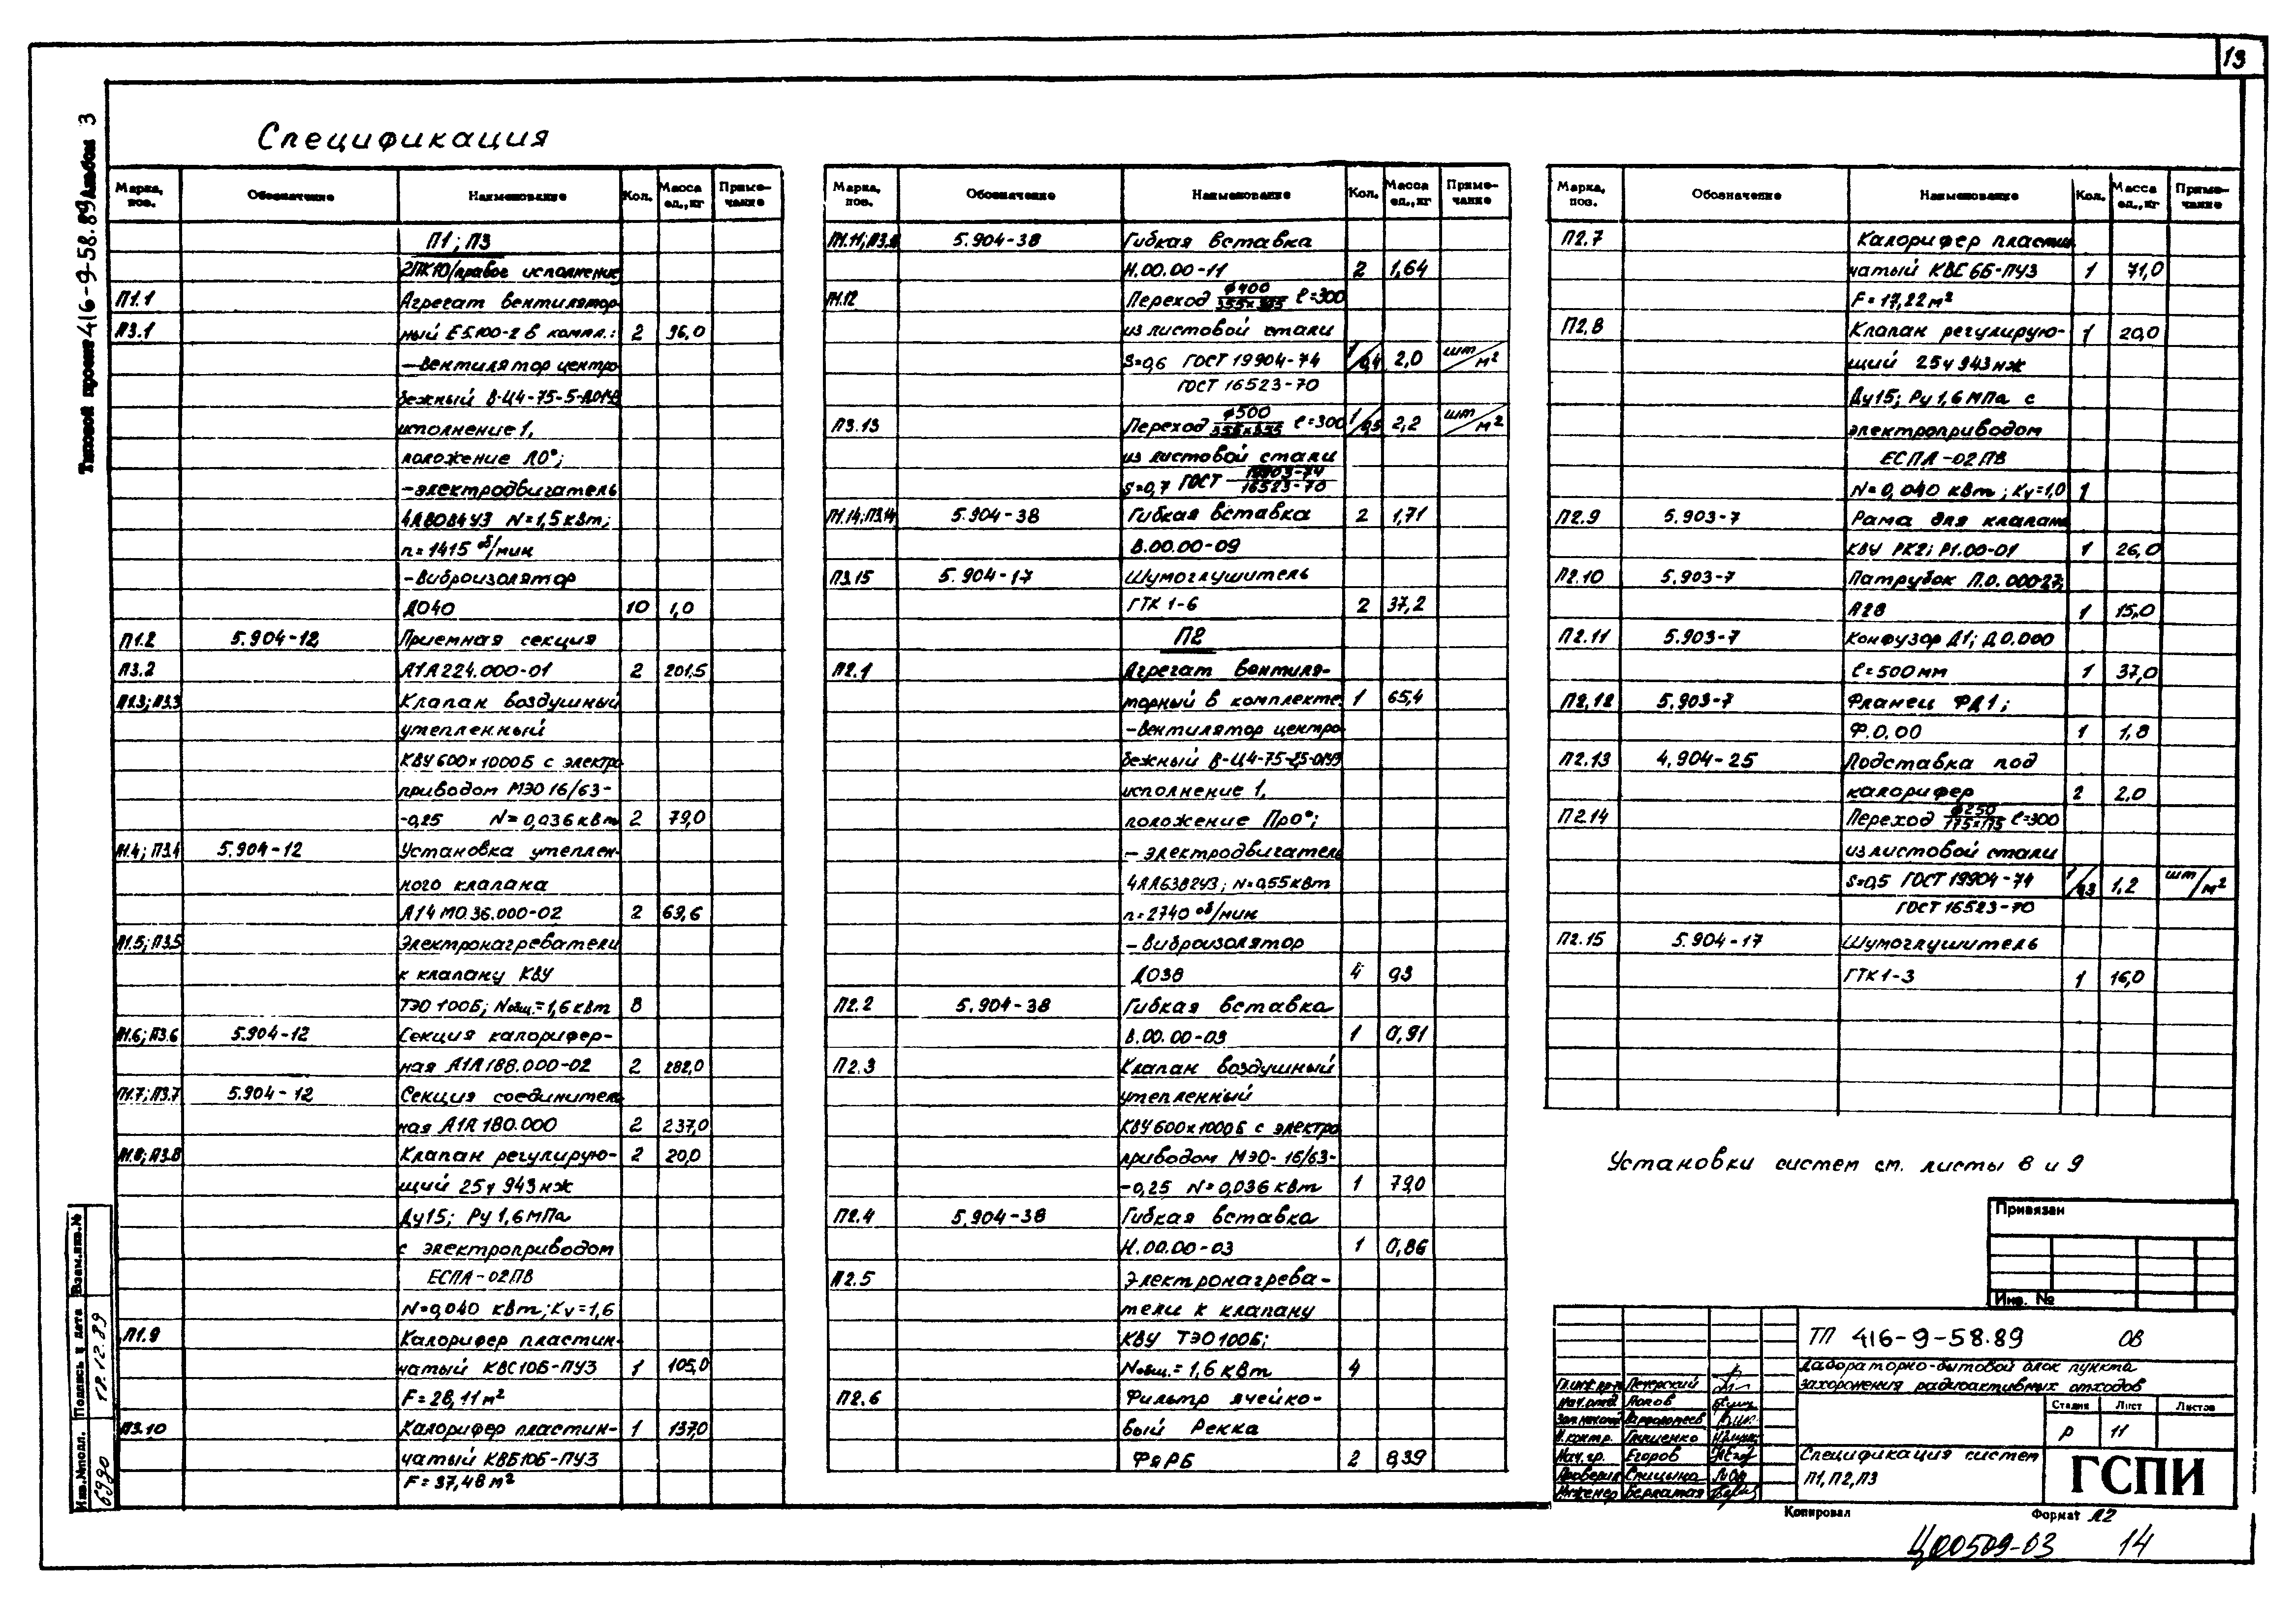 13
Типовой проект 416-9-58.89 Альбом 3
Спецификация
Марка, поз. Обозначение Наименование Кол. Масса ед., кг Приме-чание
П1; П3
2ПК10/правое исполнение
П1.1 Агрегат вентилятор-
П3.1 ный Е5.100-2 в компл.: 2 96,0
-Вентилятор центро
бежный В-Ц4-75-5-
исполнение 1,
положение Л0°;
-электродвигатель
4А80В4У3 N=1,5 кВт;
n=1415 об/мин
-Виброизолятор
ДО40 10 1,0
П1.2 5.904-12 Приемная секция
П3.2 А1А224.000-01 2 201,5
П1.3; П3.3 Клапан воздушный
утепленный
КВУ600×1000Б с электро
приводом МЭО 16/63-
-0,25 N=0,036 кВт 2 79,0
П1.4; П3.4 5.904-12 Установка утеплен-
ного клапана
А14М0.36.000-02 2 69,6
П1.5; П3.5 Электронагреватели
к клапану КВУ
ТЭО 100Б; Nобщ.=1,6 кВт 8
П1.6; П3.6 5.904-12 Секция калорифер-
ная А1А188.000-02 2 282,0
П1.7; П3.7 5.904-12 Секция соединитель
ная А1А180.000 2 237,0
П1.8; П3.8 Клапан регулирую- 2 20,0
щий 25ч943нж
Ду15; Ру 1,6 МПа
с электроприводом
ЕСПА-02ПВ
N=0,040 кВт; Kv=1,6
П1.9 Калорифер пластин-
чатый КВС10Б-ПУ3 1 105,0
F=28,11 м²
П3.10 Калорифер пластин- 1 137,0
чатый КВБ10Б-ПУ3
F=37,48 м²
Марка, поз. Обозначение Наименование Кол. Масса ед., кг Приме-чание
5.904-38 Гибкая вставка
Н.00.00-11 2 1,64
П1.12 Переход ф400/355×355 ℓ=300
из листовой стали
S=0,6 ГОСТ 19904-74 1/0,4 2,0 шт/м²
ГОСТ 16523-70
П3.13 Переход ф500/355×355 ℓ=300 1/0,5 2,2 шт/м²
из листовой стали
S=0,7 ГОСТ 19903-74/16523-70
П1.14; П3.14 5.904-38 Гибкая вставка 2 1,71
В.00.00-09
П3.15 5.904-17 Шумоглушитель
ГТК 1-6 2 37,2
П2
П2.1 Агрегат вентиля-
торный в комплекте: 1 65,4
-Вентилятор центро
бежный В-Ц4-75-
исполнение 1,
положение Пр0°;
-электродвигатель
4АА63В2У3; N=0,55 кВт
n=2740 об/мин
-Виброизолятор
ДО38 4 0,3
П2.2 5.904-38 Гибкая вставка
В.00.00-03 1 0,91
П2.3 Клапан воздушный
утепленный
КВУ600×1000Б с электро
приводом МЭО-16/63-
-0,25 N=0,036 кВт 1 79,0
П2.4 5.904-38 Гибкая вставка
Н.00.00-03 1 0,86
П2.5 Электронагрева-
тели к клапану
КВУ ТЭО100Б;
Nобщ.=1,6 кВт 4
П2.6 Фильтр ячейко-
вый Рекка
ФяРБ 2 8,39
Марка, поз. Обозначение Наименование Кол. Масса ед., кг Приме-чание
П2.7 Калорифер пластин
чатый КВС6Б-ПУ3 1 71,0
F=17,22 м²
П2.8 Клапан регулирую- 1 20,0
щий 25ч943нж
Ду15; Ру 1,6 МПа с
электроприводом
ЕСПА-02ПВ
N=0,040 кВт; Kv=1,0 1
П2.9 5.903-7 Рама для клапана
КВУ РК2; Р1.00-01 1 26,0
П2.10 5.903-7 Патрубок П.0.000-27;
А2В 1 15,0
П2.11 5.903-7 Конфузор Д1; Д0.000
ℓ=500 мм 1 37,0
П2.12 5.903-7 Фланец ФД1;
Ф.0.00 1 1,8
П2.13 4.904-25 Подставка под
калорифер 2 2,0
П2.14 Переход ф250/175×175 ℓ=300
из листовой стали
S=0,5 ГОСТ 19904-74 1/0,3 1,2 шт/м²
ГОСТ 16523-70
П2.15 5.904-17 Шумоглушитель
ГТК1-3 1 16,0
Установки систем см. листы 8 и 9
Привязан
Инв. №
ТП 416-9-58.89 ОВ
Лабораторно-бытовой блок пункта
захоронения радиоактивных отходов
Гл.инж.пр-та Печерский
Нач.отд. Попов
Н.контр. Глищенко
Нач.гр. Егоров
Проверил Спицына
Инженер
Стадия Лист Листов
Р 11
Спецификация систем
П1, П2, П3
ГСПИ
Копировал Формат А2
Ц00509-03 14
Инв.№подл. Подпись и дата Взам.инв.№
6990 12.89